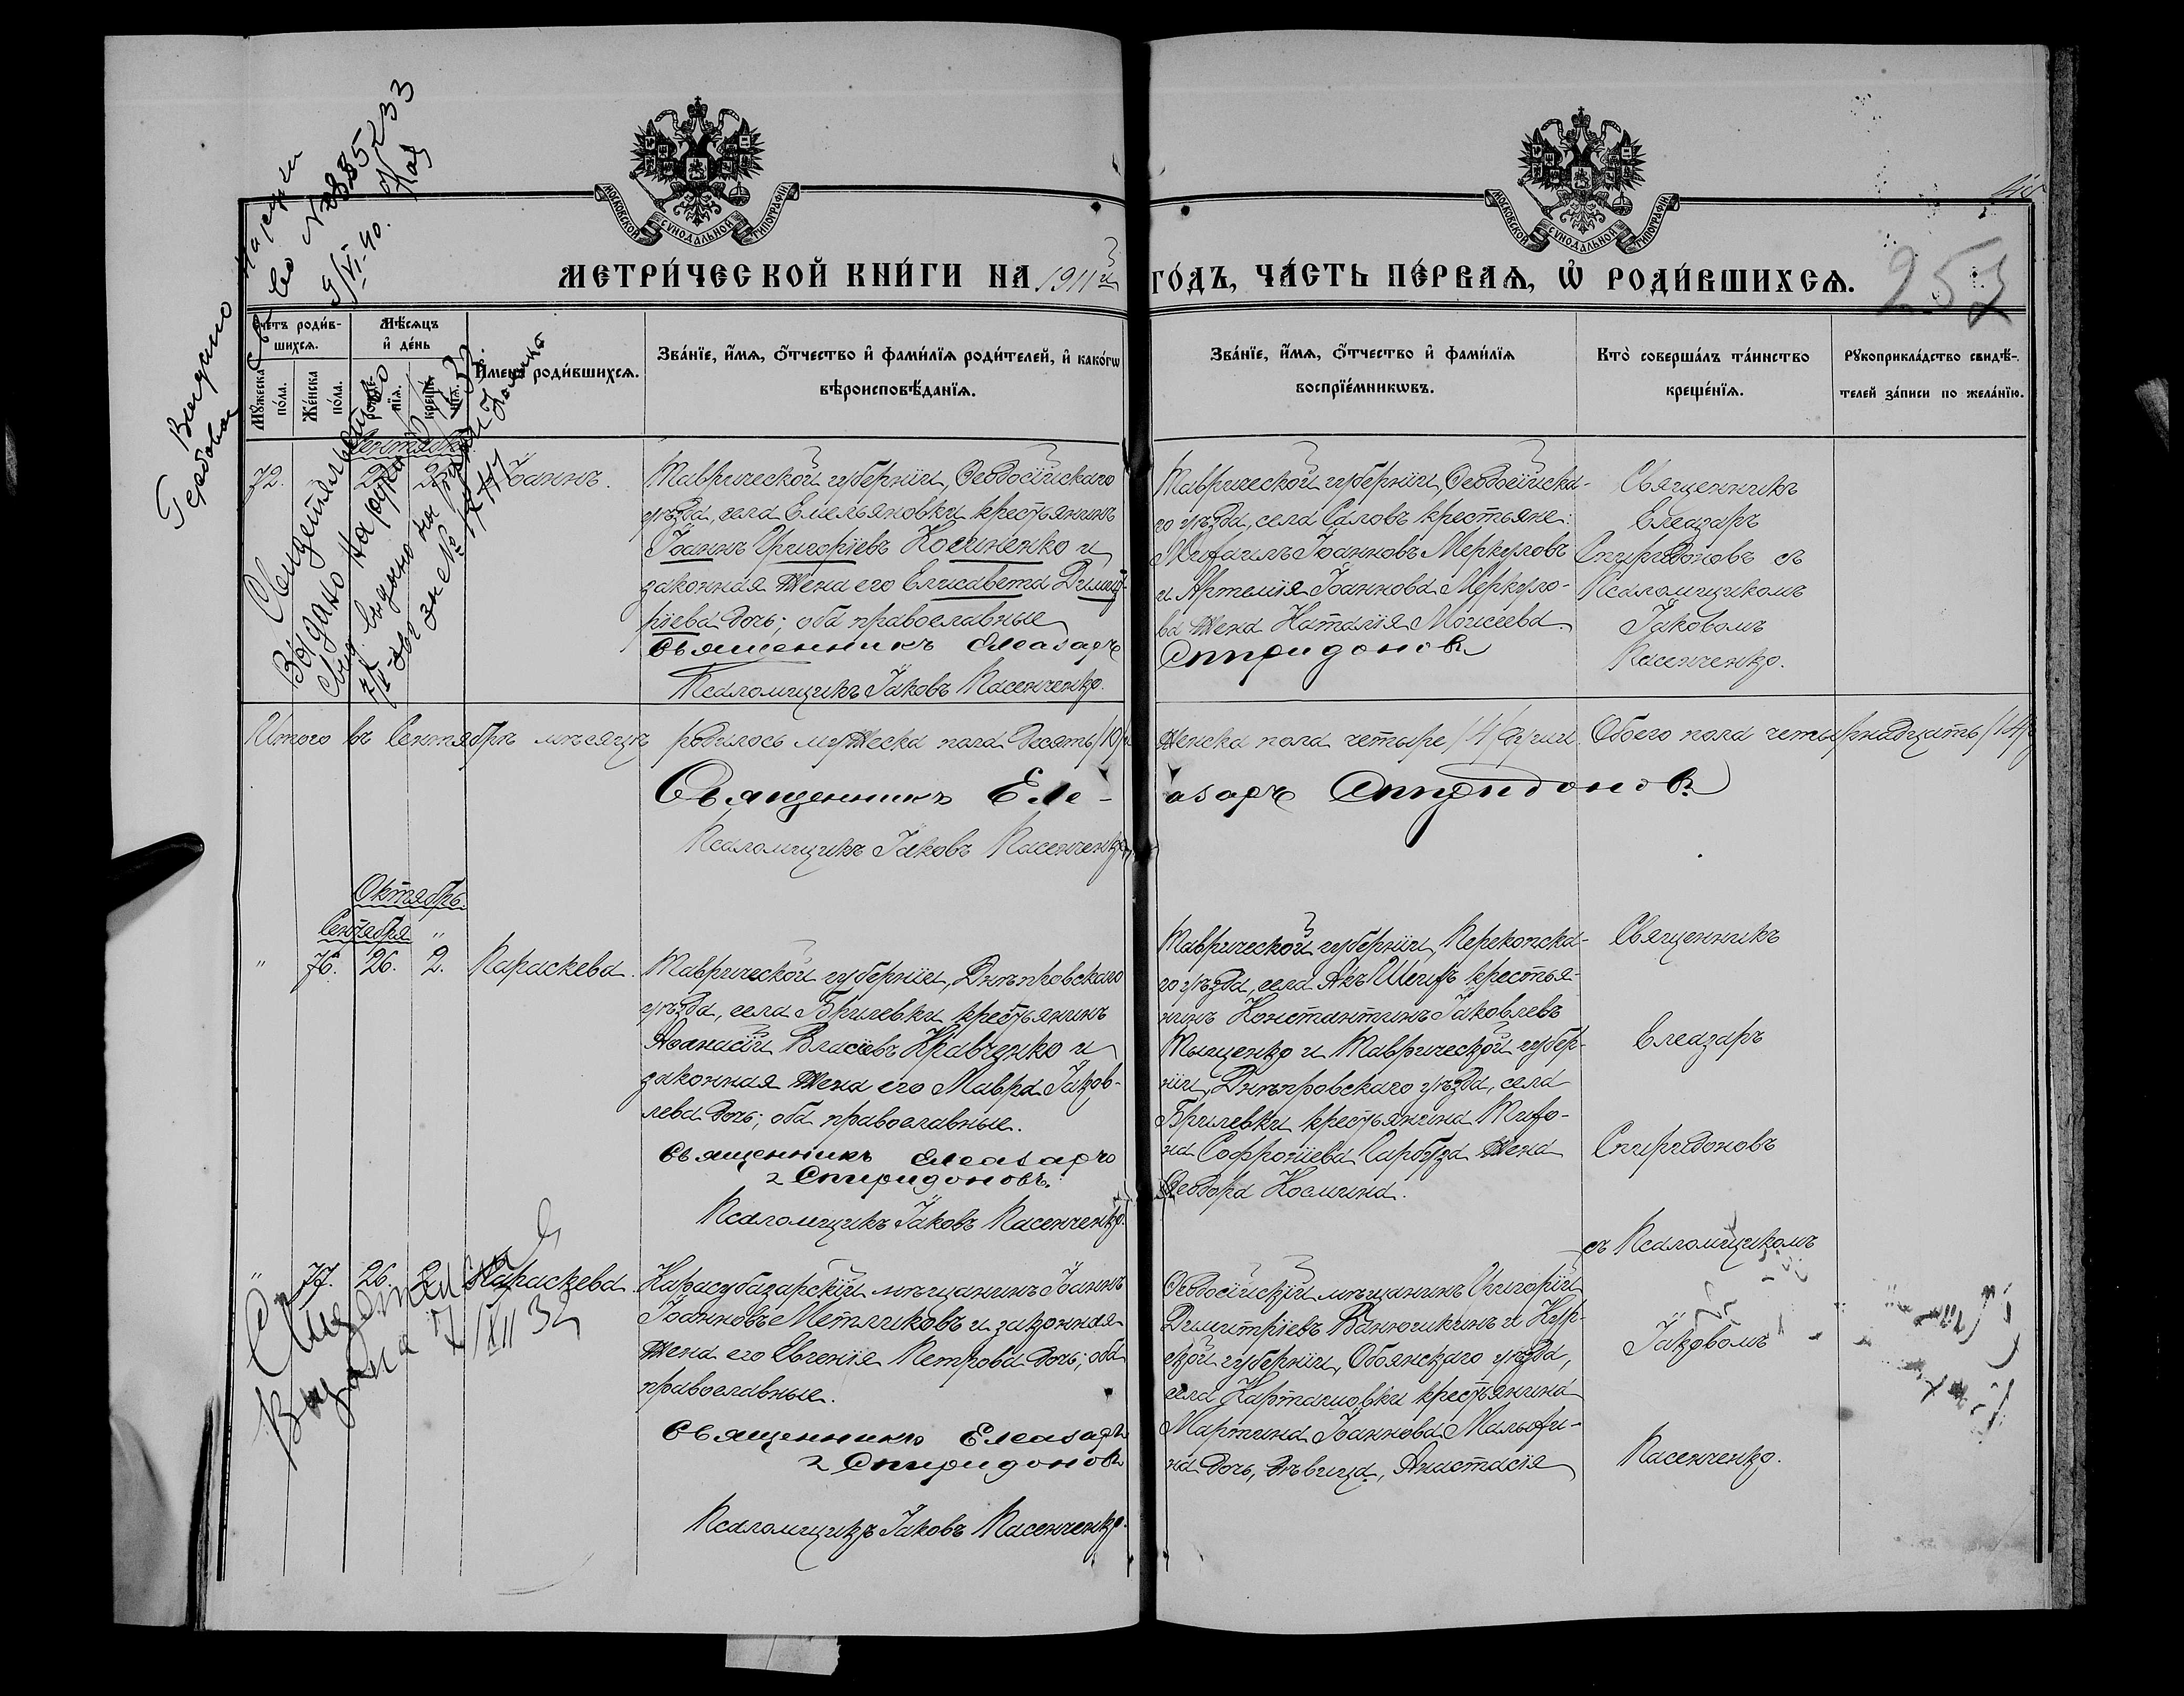 МОСКОВСКОЙ СѴНОДАЛЬНОЙ ТИПОГРАФІИ
МОСКОВСКОЙ СѴНОДАЛЬНОЙ ТИПОГРАФІИ
МЕТРИ́ЧЕСКОЙ КНИ́ГИ НА 1911й ГО́ДЪ, ЧА́СТЬ ПЕ́РВАѦ, Ѡ҆ РОДИ́ВШИХСѦ.
253
Счетъ роди́в-
шихсѧ.
Мꙋ́жеска по́ла.
Же́нска по́ла.
Мѣ́сѧцъ
и҆ де́нь
креще́-
нїѧ.
Имена̀ роди́вшихсѧ.
Зва́нїе, и҆́мѧ, ѻ҆́тчество и҆ фами́лїѧ роди́телей, и҆ како́гѡ
вѣроисповѣ́данїѧ.
Зва́нїе, и҆́мѧ, ѻ҆́тчество и҆ фами́лїѧ
воспрїе́мникѡвъ.
Кто̀ соверша́лъ та́инство
креще́нїѧ.
Рꙋкоприкла́дство свидѣ́-
телей за́писи по жела́нїю.
Выдано
9/VI-40.
Сентябрь
72.
Іоаннъ.
Таврической губерніи, Ѳеодосійскаго
уѣзда, села Емельяновки крестьянинъ
Іоаннъ Григоріевъ Косиненко и
законная жена его Елисавета Димит-
ріева дочь; оба православные
Священникъ Елеазаръ Спиридоновъ
Псаломщикъ Іаковъ Пасенченко.
Таврической губерніи, Ѳеодосійска-
го уѣзда, села Саловъ крестьяне:
Михаилъ Іоанновъ Меркуловъ
и Артемія Іоаннова Меркуло-
ва жена Наталія Моисеева.
Священникъ
Елеазаръ
Спиридоновъ съ
Псаломщикомъ
Іаковомъ
Пасенченко.
Итого въ Сентябрѣ мѣсяцѣ родилось мужеска пола десять /10/ женска пола четыре /4/ души. Обоего пола четырнадцать /14/
Священникъ Еле-азаръ Спиридоновъ
Псаломщикъ Іаковъ Пасенченко
Октябрь.
Сентября "
" 76. 26. 2. Параскева.
Таврической губерніи, Днѣпровскаго
уѣзда, села Брилевки крестьянинъ
Аѳанасій Власіевъ Кравченко и
законная жена его Мавра Іаков-
лева дочь; оба православные.
Священникъ Елеазаръ
Спиридоновъ.
Псаломщикъ Іаковъ Пасенченко.
Таврической губерніи, Перекопска-
го уѣзда, села Акъ Шеихъ крестья-
нинъ Константинъ Іаковлевъ
Тыщенко и Таврической губер-
ніи, Днѣпровскаго уѣзда, села
Брилевки крестьянина Тихо-
на Софроніева Гарбуза жена
Ѳеодора Космина.
Священникъ
Елеазаръ
Спиридоновъ
съ Псаломщикомъ
Іаковомъ
Пасенченко.
" 77. 26. 2. Параскева.
Карасубазарскій мѣщанинъ Іоаннъ
Іоанновъ Метликовъ и законная
жена его Евгенія Петрова дочь; оба
православные.
Священникъ Елеазаръ
Спиридоновъ
Псаломщикъ Іаковъ Пасенченко.
Ѳеодосійскій мѣщанинъ Григорій
Димитріевъ Ванюшкинъ и Кур-
ской губерніи, Обоянскаго уѣзда,
села Карташовки крестьянина
Мартина Іоаннова Мальфи-
на дочь, дѣвица, Анастасія
Выдана 7/XII 32